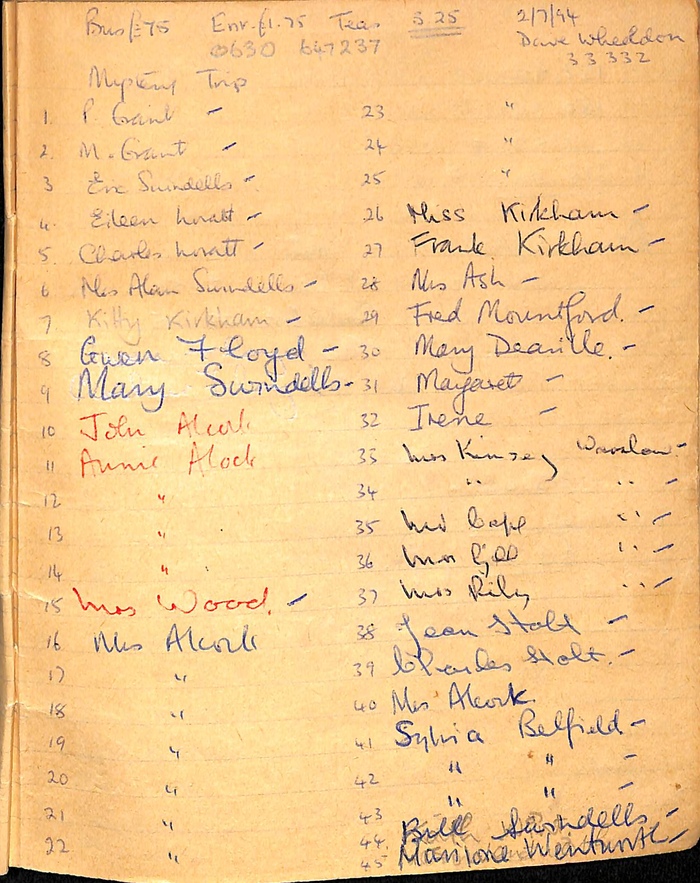 Bus £75 Ent. £1.75 Teas 5.25 2/7/94
0630 647237 Dave Wheeldon
33332
Mystery Trip
1. P. Grant -
2. M. Grant -
3 Eric Swindells -
4. Eileen Lovatt -
5. Charles Lovatt -
6 Mrs Alan Swindells -
7 Kitty Kirkham -
8 Gwen Floyd -
9 Mary Swindells -
10 John Alcock
11 Annie Alcock
12 "
13 "
14 "
15 Mrs Wood. -
16 Mrs Alcock
17 "
18 "
19 "
20 "
21 "
22 "
23 "
24 "
25 "
26 Miss Kirkham -
27 Frank Kirkham -
28 Mrs Ash -
29 Fred Mountford. -
30 Mary Deaville. -
31 Margaret -
32 Irene -
33 Mrs Kimsey Warslow -
34 " " -
35 Mrs " -
36 Mrs Gill " -
37 Mrs Riley " -
38 Jean Stolt -
39 Charles Stolt. -
40 Mrs Alcock
41 Sylvia Belfield -
42 " " -
43 " " -
44. Beth Swindells -
45 Marjorie Wentworth -